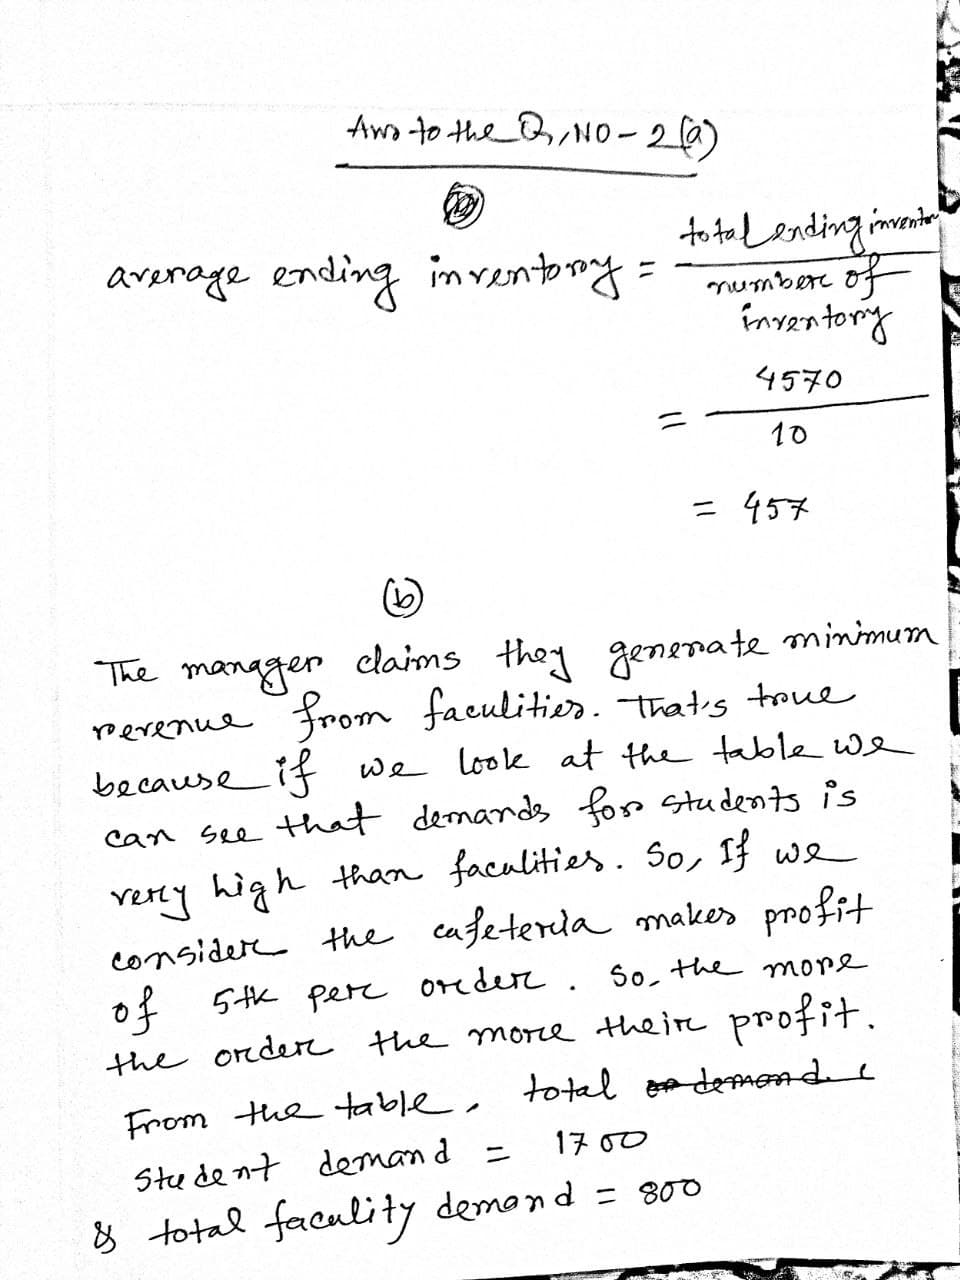 Ans to the Q, NO - 2 (a)
average ending inventory = total ending inventor / number of inventory
= 4570 / 10
= 457
(b)
The manager claims they generate minimum
revenue from faculities. That's true
because if we look at the table we
can see that demands for students is
very high than faculities. So, If we
consider the cafeteria makes profit
of 5tk per order. So, the more
the order the more their profit.
From the table, total demand
Student demand = 1700
& total faculity demand = 800